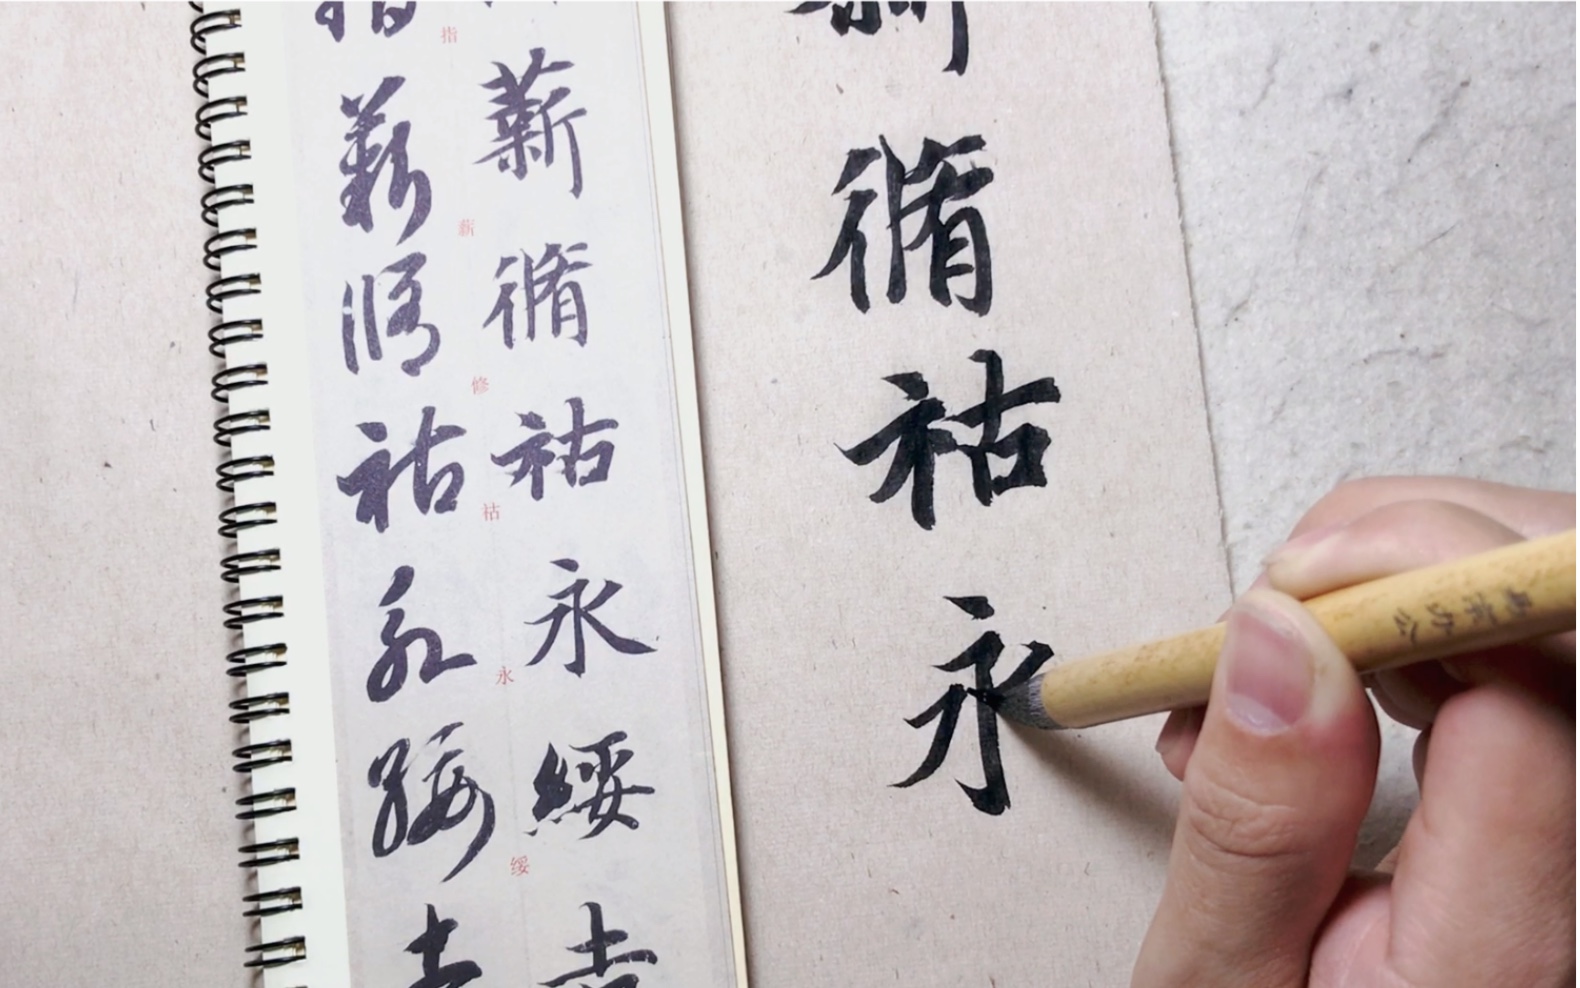 薪脩祜永
薪脩祜永綏吉
指薪修祜永绥
指薪脩祜永綏吉